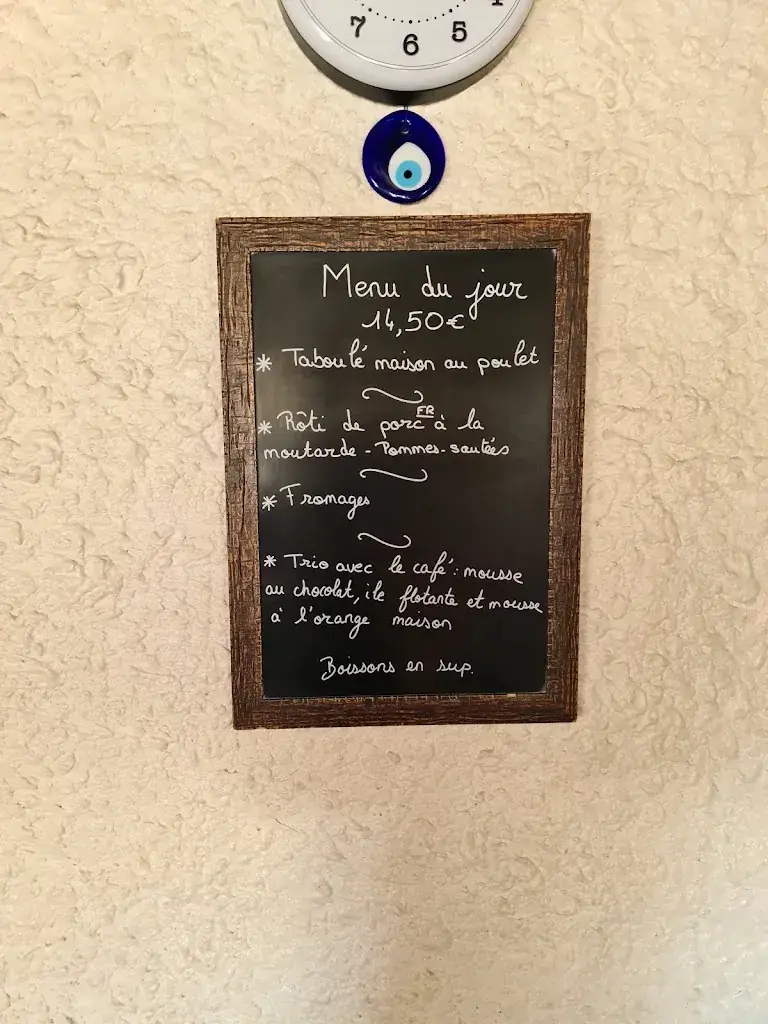 7 6 5 4
Menu du jour
14,50€
* Taboulé maison au poulet
* Rôti de porc FR à la
moutarde - Pommes-sautées
* Fromages
* Trio avec le café : mousse
au chocolat, ile flotante et mousse
à l'orange maison
Boissons en sup.